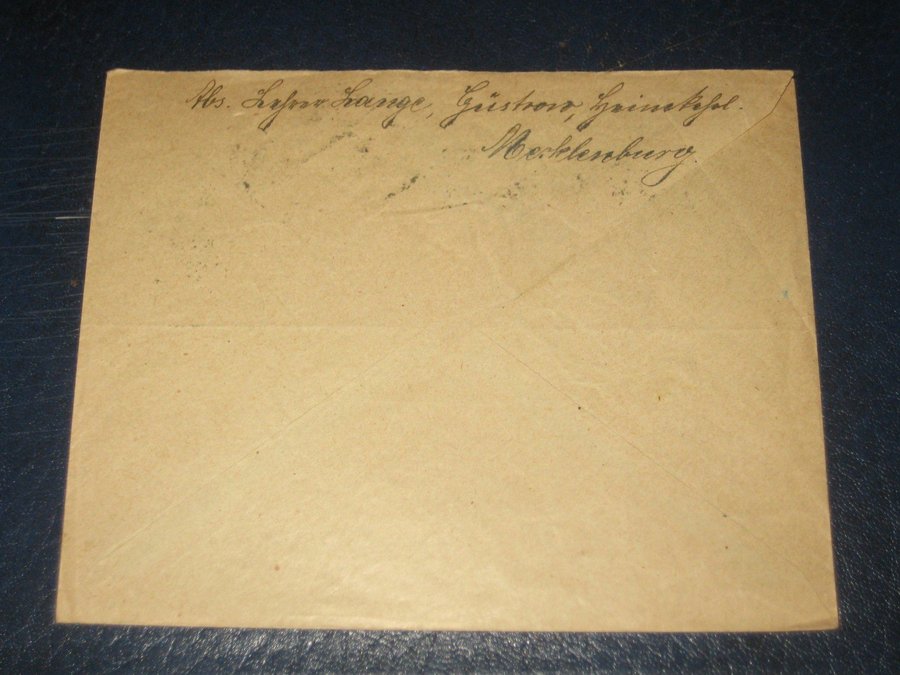 Abs. Lehrer Lange, Güstrow,
Mecklenburg.